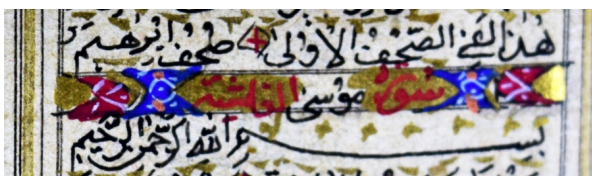 هذا لفي الصحف الاولى صحف ابرهيم
سورة موسى الغاشية
بسم الله الرحمن الرحيم